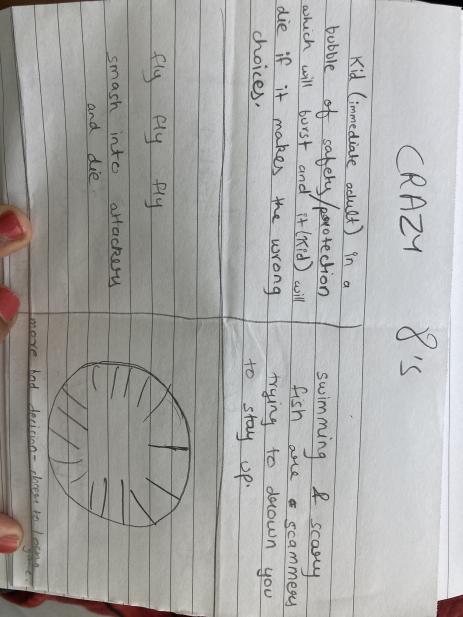 CRAZY 8's
Kid (immediate adult) in a
bubble of safety/protection
which will burst and it (kid) will
die if it makes the wrong
choices.
swimming & scary
fish are scammers
trying to drown you
to stay up.
fly fly fly
smash into attackers
and die.
more bad decision = closer to